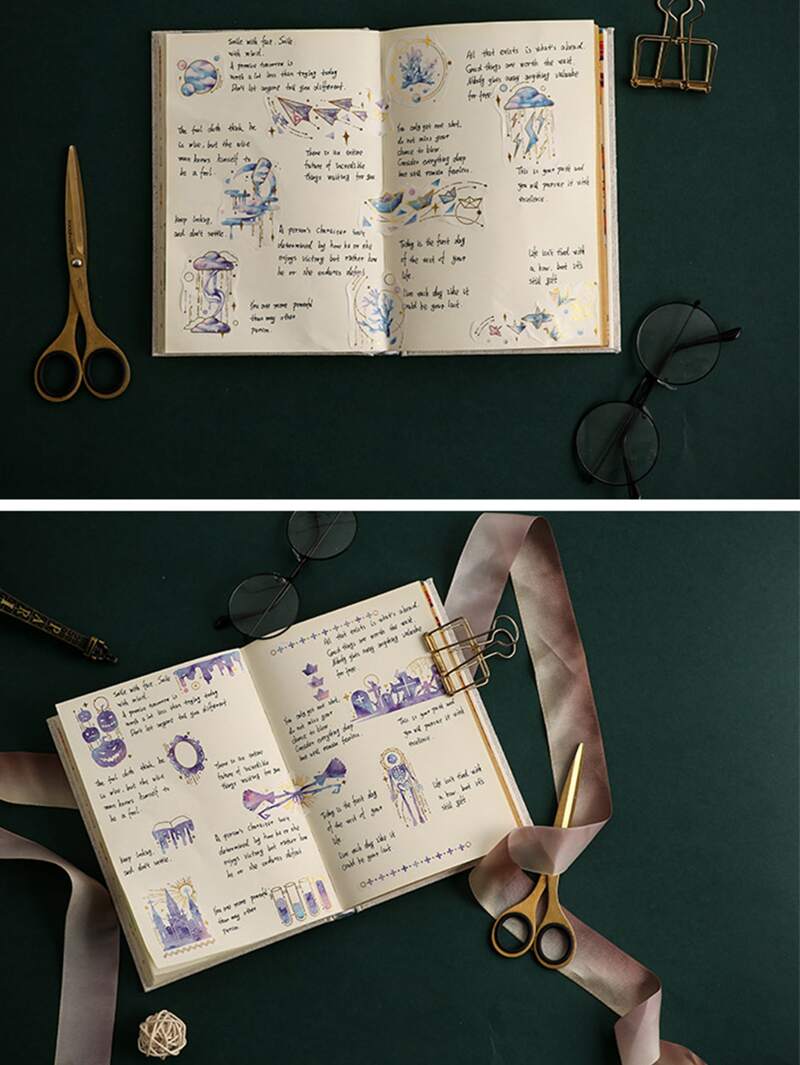 Smile with face. Smile
with mind.
A promise tomorrow is
worth a lot less than trying today
Don't let anyone tell you different.
The fool doth think he
is wise, but the wise
man knows himself to
be a fool.
There is an entire
future of incredible
things waiting for you
keep looking,
and don't settle.
A person's character isn't
determined by how he or she
enjoys victory but rather how
he or she endures defeat
You are more powerful
than may other
person.
All that exists is what's ahead.
Good things are worth the wait.
Nobody gives away anything valuable
for free
You only get one shot,
do not miss your
chance to blow
Consider everything deep
but still remain fearless.
This is your past and
you will pursue it with
resilience.
Today is the first day
of the rest of your
life.
Live each day like it
could be your last
Life isn't tied with
a bow, but it's
still gift
PARIS
Smile with face. Smile
with mind.
A promise tomorrow is
worth a lot less than trying today
Don't let anyone tell you different
The fool doth think he
is wise, but the wise
man knows himself to
be a fool.
There is an entire
future of incredible
things waiting for you
keep looking,
and don't settle.
A person's character isn't
determined by how he or she
enjoys victory but rather how
he or she endures defeat
You are more powerful
than may other
person.
All that exists is what's ahead.
Good things are worth the wait.
Nobody gives away anything valuable
for free
You only get one shot,
do not miss your
chance to blow
Consider everything deep
but still remain fearless.
This is your past and
you will pursue it with
resilience.
Today is the first day
of the rest of your
life
Live each day like it
could be your last
Life isn't tied with
a bow, but it's
still gift